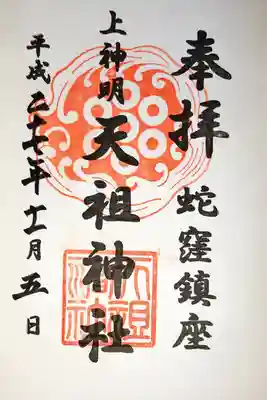 奉拝 蛇窪鎮座
上神明
天祖神社
平成二十七年十一月五日
天祖神社